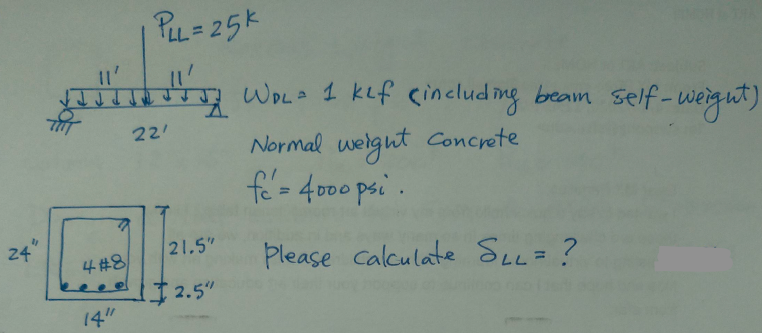 PLL = 25k
11' 11'
22'
WDL = 1 klf (including beam self-weight)
Normal weight concrete
fc' = 4000 psi.
24"
4#8
21.5"
2.5"
14"
Please calculate δLL = ?